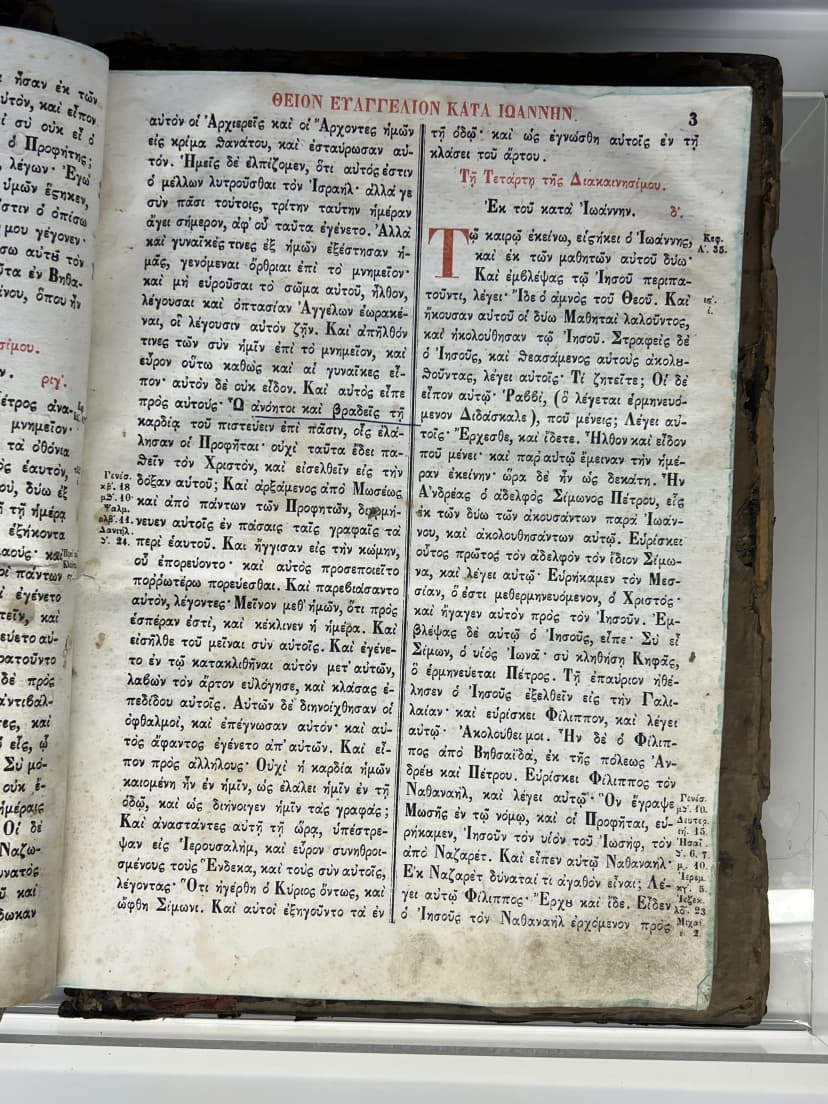 ἦσαν ἐκ τῶν
αὐτόν, καὶ εἶπον
σὺ οὐκ εἶ ὁ
ὁ Προφήτης;
λέγων· Ἐγὼ
ὑμῶν ἕστηκεν,
στιν ὁ ὀπίσω
μου γέγονεν·
σω αὐτοῦ τὸν
ῦτα ἐν Βηθα-
άνου, ὅπου ἦν
σίμου.
ριγ'.
έτρος ἀνα-
μνημεῖον·
τὰ ὀθόνια
ς ἑαυτὸν,
ου, δύω ἐξ
τῇ ἡμέρᾳ
ἑξήκοντα
οἱ πάντων
ἐγένετο
τεῖν, καὶ
εύετο αὐ-
ρατοῦντο
δὲ πρὸς
ἀντιβάλ-
τες, καὶ
εἷς, ᾧ
Σὺ μό-
οὐκ ἔ-
ἡμέραις
Οἱ δὲ
Ναζω-
υνατὸς
ῦ καὶ
δωκαν
ΘΕΙΟΝ ΕΥΑΓΓΕΛΙΟΝ ΚΑΤΑ ΙΩΑΝΝΗΝ. 3
αὐτὸν οἱ Ἀρχιερεῖς καὶ οἱ Ἄρχοντες ἡμῶν
εἰς κρίμα θανάτου, καὶ ἐσταύρωσαν αὐ-
τόν. Ἡμεῖς δὲ ἐλπίζομεν, ὅτι αὐτός ἐστιν
ὁ μέλλων λυτροῦσθαι τὸν Ἰσραήλ· ἀλλά γε
σὺν πᾶσι τούτοις, τρίτην ταύτην ἡμέραν
ἄγει σήμερον, ἀφ' οὗ ταῦτα ἐγένετο. Ἀλλὰ
καὶ γυναῖκές τινες ἐξ ἡμῶν ἐξέστησαν ἡ-
μᾶς, γενόμεναι ὄρθριαι ἐπὶ τὸ μνημεῖον·
καὶ μὴ εὑροῦσαι τὸ σῶμα αὐτοῦ, ἦλθον,
λέγουσαι καὶ ὀπτασίαν Ἀγγέλων ἑωρακέ-
ναι, οἳ λέγουσιν αὐτὸν ζῇν. Καὶ ἀπῆλθόν
τινες τῶν σὺν ἡμῖν ἐπὶ τὸ μνημεῖον, καὶ
εὗρον οὕτω καθὼς καὶ αἱ γυναῖκες εἶ-
πον· αὐτὸν δὲ οὐκ εἶδον. Καὶ αὐτὸς εἶπε
πρὸς αὐτούς· Ὦ ἀνόητοι καὶ βραδεῖς τῇ
καρδίᾳ τοῦ πιστεύειν ἐπὶ πᾶσιν, οἷς ἐλά-
λησαν οἱ Προφῆται· οὐχὶ ταῦτα ἔδει πα-
θεῖν τὸν Χριστὸν, καὶ εἰσελθεῖν εἰς τὴν
δόξαν αὐτοῦ; Καὶ ἀρξάμενος ἀπὸ Μωσέως
καὶ ἀπὸ πάντων τῶν Προφητῶν, διηρμή-
νευεν αὐτοῖς ἐν πάσαις ταῖς γραφαῖς τὰ
περὶ ἑαυτοῦ. Καὶ ἤγγισαν εἰς τὴν κώμην,
οὗ ἐπορεύοντο· καὶ αὐτὸς προσεποιεῖτο
πορρωτέρω πορεύεσθαι. Καὶ παρεβιάσαντο
αὐτὸν, λέγοντες· Μεῖνον μεθ' ἡμῶν, ὅτι πρὸς
ἑσπέραν ἐστὶ, καὶ κέκλινεν ἡ ἡμέρα. Καὶ
εἰσῆλθε τοῦ μεῖναι σὺν αὐτοῖς. Καὶ ἐγένε-
το ἐν τῷ κατακλιθῆναι αὐτὸν μετ' αὐτῶν,
λαβὼν τὸν ἄρτον εὐλόγησε, καὶ κλάσας ἐ-
πεδίδου αὐτοῖς. Αὐτῶν δὲ διηνοίχθησαν οἱ
ὀφθαλμοὶ, καὶ ἐπέγνωσαν αὐτόν· καὶ αὐ-
τὸς ἄφαντος ἐγένετο ἀπ' αὐτῶν. Καὶ εἶ-
πον πρὸς ἀλλήλους· Οὐχὶ ἡ καρδία ἡμῶν
καιομένη ἦν ἐν ἡμῖν, ὡς ἐλάλει ἡμῖν ἐν τῇ
ὁδῷ, καὶ ὡς διήνοιγεν ἡμῖν τὰς γραφάς;
Καὶ ἀναστάντες αὐτῇ τῇ ὥρᾳ, ὑπέστρε-
ψαν εἰς Ἱερουσαλὴμ, καὶ εὗρον συνηθροι-
σμένους τοὺς Ἕνδεκα, καὶ τοὺς σὺν αὐτοῖς,
λέγοντας· Ὅτι ἠγέρθη ὁ Κύριος ὄντως, καὶ
ὤφθη Σίμωνι. Καὶ αὐτοὶ ἐξηγοῦντο τὰ ἐν
Γενέσ.
κβ'. 18
μθ'. 10·
Ψαλμ.
ρλβ'. 11.
Δανιήλ.
θ'. 24.
τῇ ὁδῷ· καὶ ὡς ἐγνώσθη αὐτοῖς ἐν τῇ
κλάσει τοῦ ἄρτου.
Τῇ Τετάρτῃ τῆς Διακαινησίμου.
Ἐκ τοῦ κατὰ Ἰωάννην. δ'.
Τῷ καιρῷ ἐκείνῳ, εἱστήκει ὁ Ἰωάννης,
καὶ ἐκ τῶν μαθητῶν αὐτοῦ δύω·
Καὶ ἐμβλέψας τῷ Ἰησοῦ περιπα-
τοῦντι, λέγει· Ἴδε ὁ ἀμνὸς τοῦ Θεοῦ. Καὶ
ἤκουσαν αὐτοῦ οἱ δύω Μαθηταὶ λαλοῦντος,
καὶ ἠκολούθησαν τῷ Ἰησοῦ. Στραφεὶς δὲ
ὁ Ἰησοῦς, καὶ θεασάμενος αὐτοὺς ἀκολου-
θοῦντας, λέγει αὐτοῖς· Τί ζητεῖτε; Οἱ δὲ
εἶπον αὐτῷ· Ῥαββί, (ὃ λέγεται ἑρμηνευό-
μενον Διδάσκαλε), ποῦ μένεις; Λέγει αὐ-
τοῖς· Ἔρχεσθε, καὶ ἴδετε. Ἦλθον καὶ εἶδον
ποῦ μένει· καὶ παρ' αὐτῷ ἔμειναν τὴν ἡμέ-
ραν ἐκείνην· ὥρα δὲ ἦν ὡς δεκάτη. Ἦν
Ἀνδρέας ὁ ἀδελφὸς Σίμωνος Πέτρου, εἷς
ἐκ τῶν δύω τῶν ἀκουσάντων παρὰ Ἰωάν-
νου, καὶ ἀκολουθησάντων αὐτῷ. Εὑρίσκει
οὗτος πρῶτος τὸν ἀδελφὸν τὸν ἴδιον Σίμω-
να, καὶ λέγει αὐτῷ· Εὑρήκαμεν τὸν Μεσ-
σίαν, ὅ ἐστι μεθερμηνευόμενον, ὁ Χριστός·
καὶ ἤγαγεν αὐτὸν πρὸς τὸν Ἰησοῦν. Ἐμ-
βλέψας δὲ αὐτῷ ὁ Ἰησοῦς, εἶπε· Σὺ εἶ
Σίμων, ὁ υἱὸς Ἰωνᾶ· σὺ κληθήσῃ Κηφᾶς,
ὃ ἑρμηνεύεται Πέτρος. Τῇ ἐπαύριον ἠθέ-
λησεν ὁ Ἰησοῦς ἐξελθεῖν εἰς τὴν Γαλι-
λαίαν· καὶ εὑρίσκει Φίλιππον, καὶ λέγει
αὐτῷ· Ἀκολούθει μοι. Ἦν δὲ ὁ Φίλιπ-
πος ἀπὸ Βηθσαϊδὰ, ἐκ τῆς πόλεως Ἀν-
δρέου καὶ Πέτρου. Εὑρίσκει Φίλιππος τὸν
Ναθαναὴλ, καὶ λέγει αὐτῷ· Ὃν ἔγραψε
Μωσῆς ἐν τῷ νόμῳ, καὶ οἱ Προφῆται, εὑ-
ρήκαμεν, Ἰησοῦν τὸν υἱὸν τοῦ Ἰωσὴφ, τὸν
ἀπὸ Ναζαρέτ. Καὶ εἶπεν αὐτῷ Ναθαναήλ·
Ἐκ Ναζαρὲτ δύναταί τι ἀγαθὸν εἶναι; Λέ-
γει αὐτῷ Φίλιππος· Ἔρχου καὶ ἴδε. Εἶδεν
ὁ Ἰησοῦς τὸν Ναθαναὴλ ἐρχόμενον πρὸς
Κεφ.
Α'. 35.
Γενέσ.
μθ'. 10.
Δευτερ.
ιη'. 15.
Ἡσαΐ.
θ'. 6. 7.
μ'. 10.
Ἱερεμ.
κγ'. 5.
Ἰεζεκ.
λδ'. 23
Μιχαί
ε'. 2.